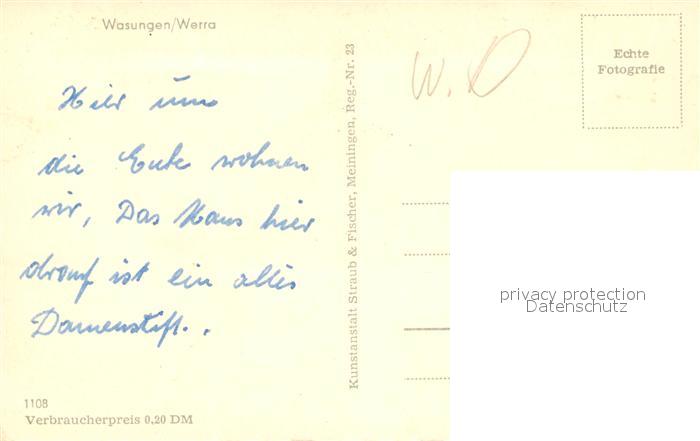 Wasungen/Werra
Echte
Fotografie
W. D
Hier um
die Ecke wohnen
wir, Das Haus hier
drauf ist ein altes
Damenstift.
Kunstanstalt Straub & Fischer, Meiningen, Reg.-Nr. 23
privacy protection
Datenschutz
1108
Verbraucherpreis 0,20 DM